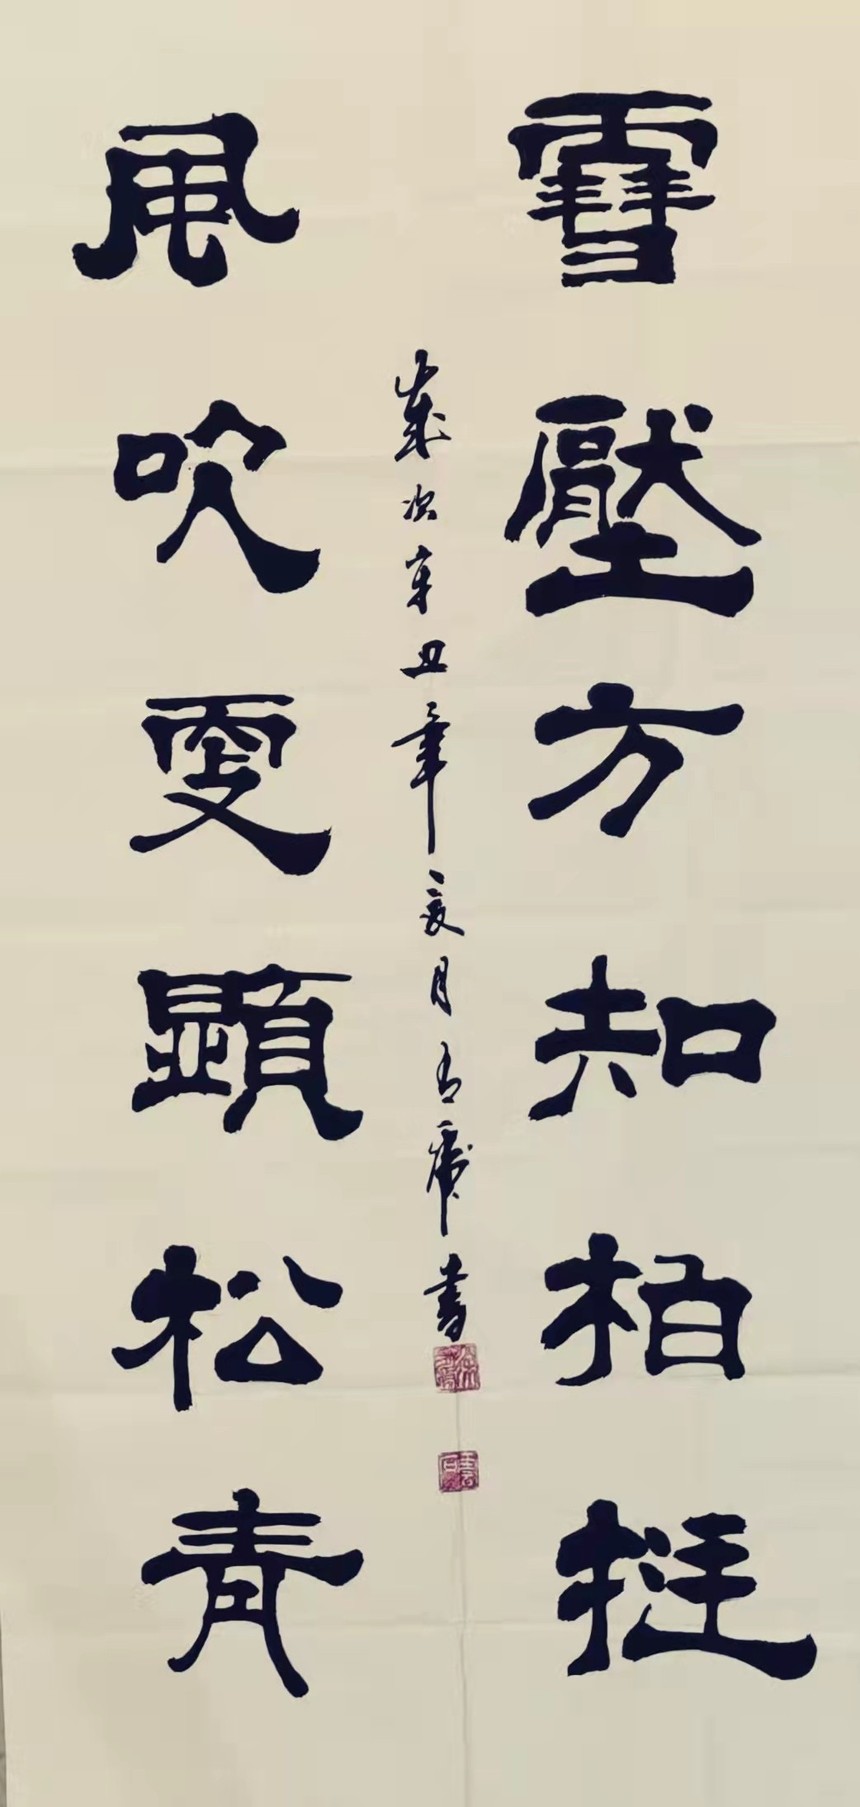 雪壓方知柏挺
風吹更顯松青
歲次辛丑年夏月有虎書